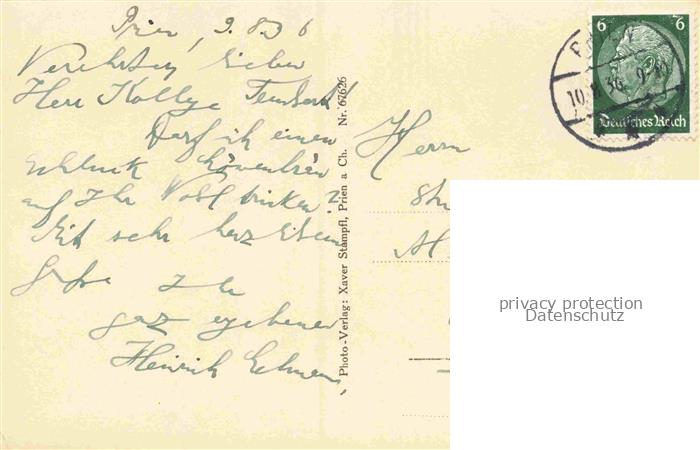 Prien, 9.8.36
Verehrter lieber
Herr Kollege
Darf ich einen
Schluck Löwenbräu
auf Ihr Wohl trinken?
Mit sehr herzlichem
Gruße Ihr
ganz ergebener
Heinrich
Photo-Verlag: Xaver Stampfl, Prien a Ch. Nr. 67626
6 6
Deutsches Reich
10. 36. 9-10
Herrn
privacy protection
Datenschutz